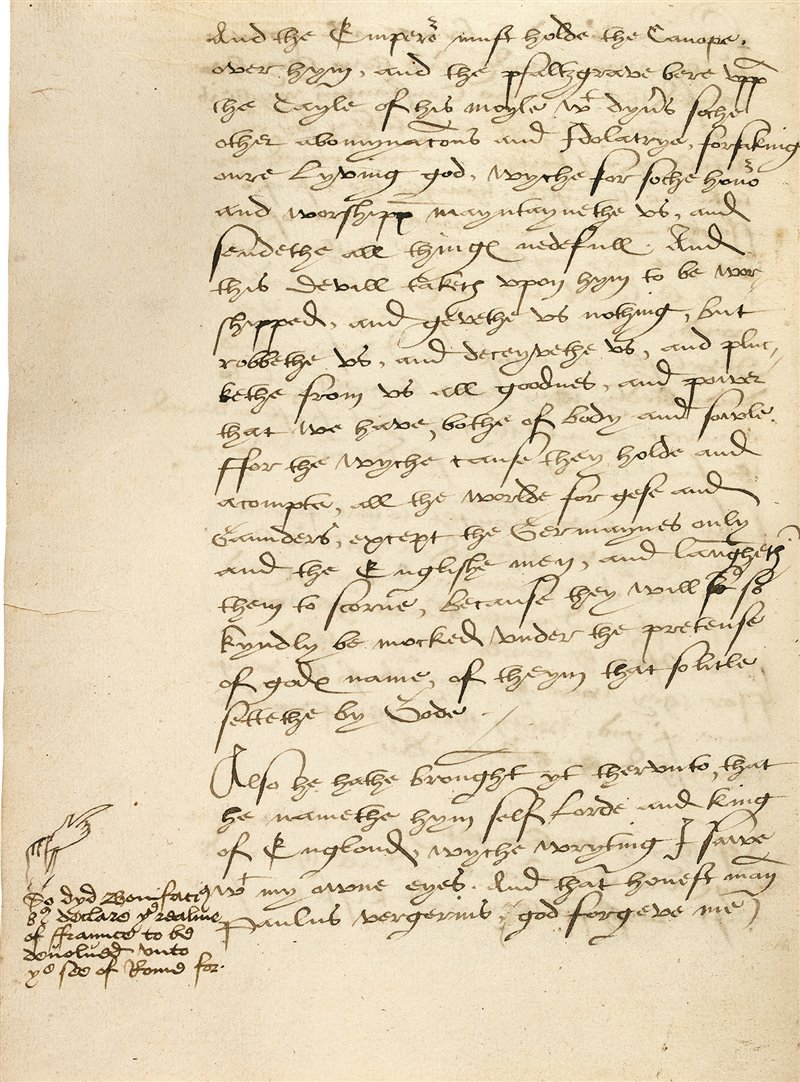 And the Emperor must holde the Canope,
over hym, and the psaltzgrave bere upp
the Tayle of his moyle wt dyvers soche
other abomynacons and Idolatrye, forsaking
oure Lyving god, wyche for soche honor
and worshipp mayntaynethe us, and
sendethe all things nedefull. And
this devill taketh upon hym to be wor-
shipped, and gevethe us nothing, but
robbethe us, and deceyvethe us, and pluc-
kethe from us all goodnes, and power
that we have, bothe of body and sowle.
ffor the wyche cause they holde and
acompte, all the worlde for gese and
Gaunders, except the Germaynes only
and the Englishe men, and laugheth
them to scorne, because they will so
kyndly be mocked under the pretense
of gods name, of theym that so litle
settethe by Gode.
Also he hathe brought yt therunto, that
he namethe hym self Lorde and king
of Englond, wyche wryting I sawe
wt my owne eyes. And that honest man
Paulus vergerius, (god forgeve me)
So dyd Bonifacius
8us declare ye realme
of ffraunce to be
devolued unto
ye see of Rome for.